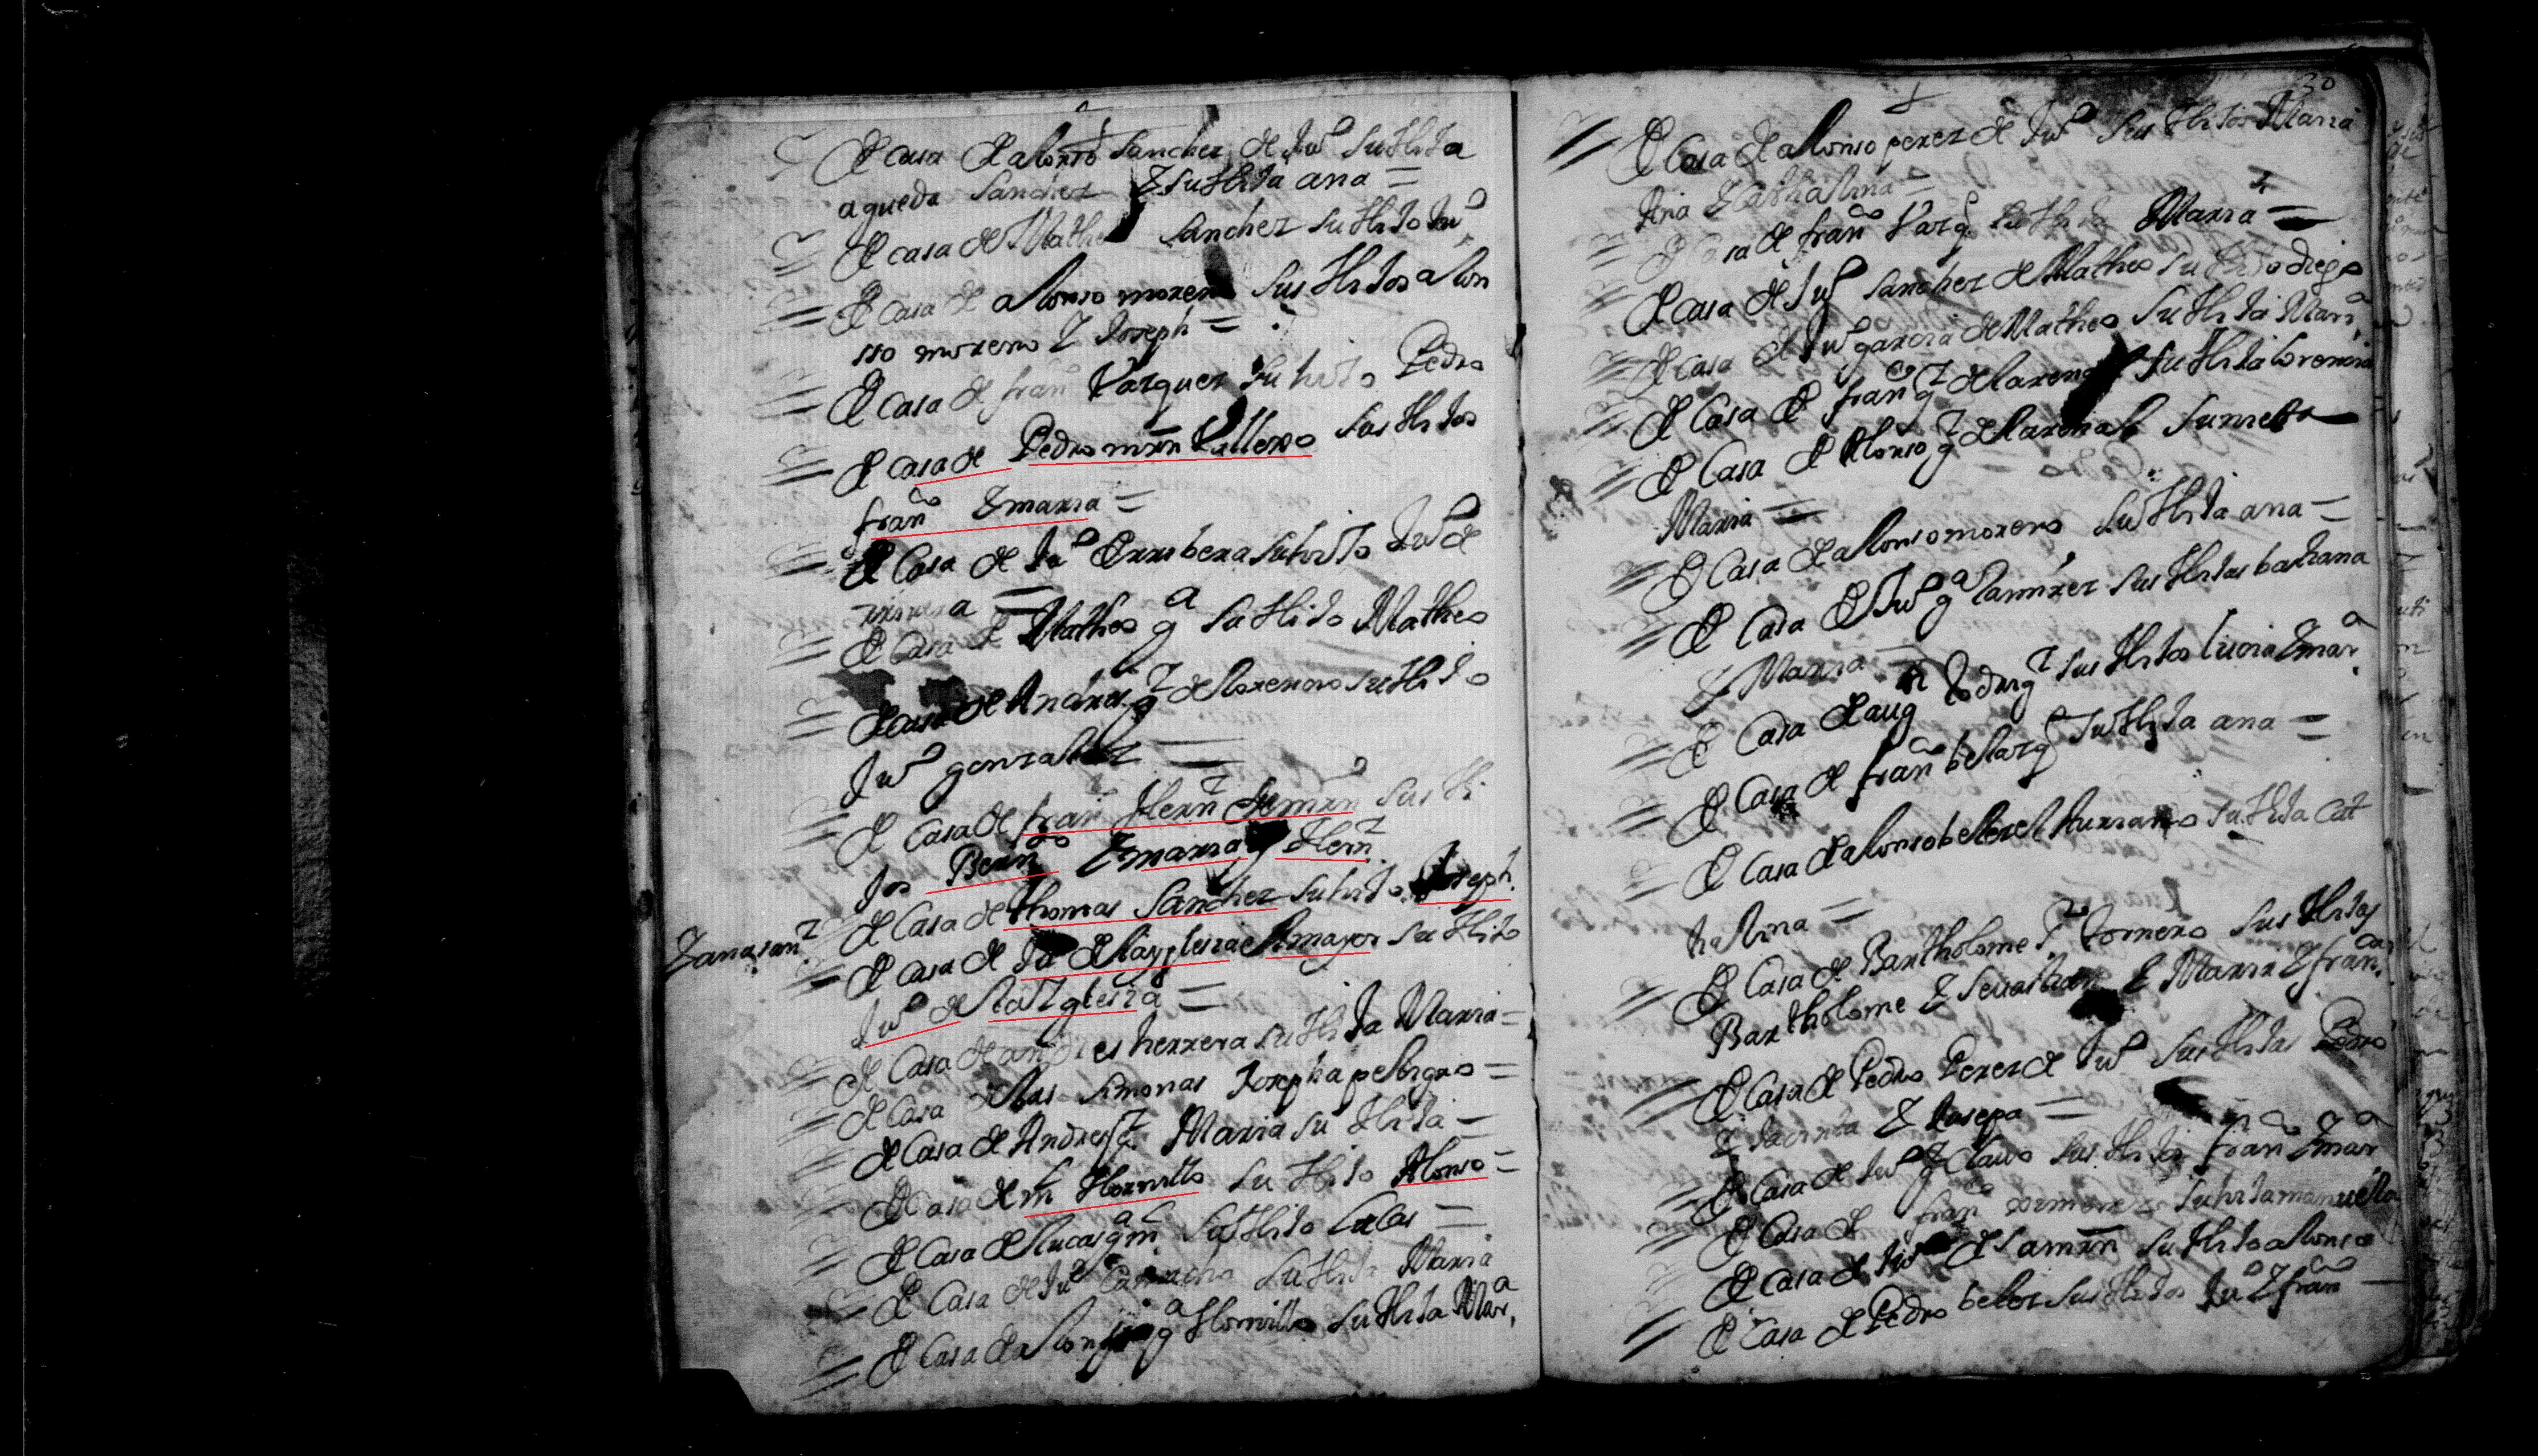 De casa de alonso sanchez de Juº su Hija
agueda sanchez Y su Hija ana =
De casa de Matheo sanchez su Hijo Juº
De casa de alonso moreno sus Hijos alon
sso moreno Y Joseph =
De casa de franᶜᵒ Vazquez su hijo Pedro
De casa de Pedro mrn Vallero sus Hijos
franᶜᵒ Y maria =
De Casa de Juº Erribera su hijo Juº de
rivera =
De Casa de Matheo gᵃ su Hijo Matheo
De casa de Andres gᶻ de lorenzo su Hijo
Juº gonzalez =
De Casa de franᶜᵒ Hernᶻ de mrn sus Hi
jos Bernᵈᵒ Y maria Hernᶻ
De Casa de thomas Sanchez su hijo Joseph
Y ana sanᶻ
De casa de Juº de la yglesia el mayor su Hijo
Juº de la Yglesia =
De Casa de andres herrera su Hija Maria =
De Casa de las simonas Josepha peligro =
De Casa de Andres gᶻ Maria su Hija =
De Casa de mn Hornillo su Hijo Alonso =
De Casa de lucas gᵃ mn su Hijo Lucas =
De Casa de Juº su Hija Maria
De Casa de alonso gᵃ Hornillo su Hija Marᵃ
30
De Casa de alonso perez de Juº sus Hijos Maria
Ana Y Cathalina =
De Casa de franᶜᵒ Vazqᶻ su Hija Maria =
De casa de Juº sanchez de Matheo su Hijo diego
De casa de Juº garcia de Matheo su Hija Marᵃ
De Casa de franᶜᵒ gᶻ del arenal su Hija lorenza
De Casa de Alonso gᶻ del arenal su nieta
Maria =
De Casa de alonso moreno su Hija ana =
De Casa de Juº gᵃ Ramirez sus Hijas bastiana
Y Maria =
De Casa de augⁿ Rodrigᶻ sus Hijos lucia Y marᵃ
De Casa de franᶜᵒ belazqᶻ su Hija ana =
De Casa de alonso belez el Hurraño su Hija Cat
halina =
De Casa de Bartholome Pᶻ tornero sus Hijos
Bartholome Y sevastian Y Maria Y franᶜᵃ
De Casa de Pedro Perez de Juº sus Hijos Pedro
Y Jacinta Y Josepa =
De Casa de Juº gᶻ Clavo sus Hijos franᶜᵒ Y marᵃ
De Casa de franᶜᵒ ximenez su hija manuela
De casa de Juº de Samrn su Hijo alonso
De Casa de Pedro belez sus Hijos Juº Y franᶜᵒ =